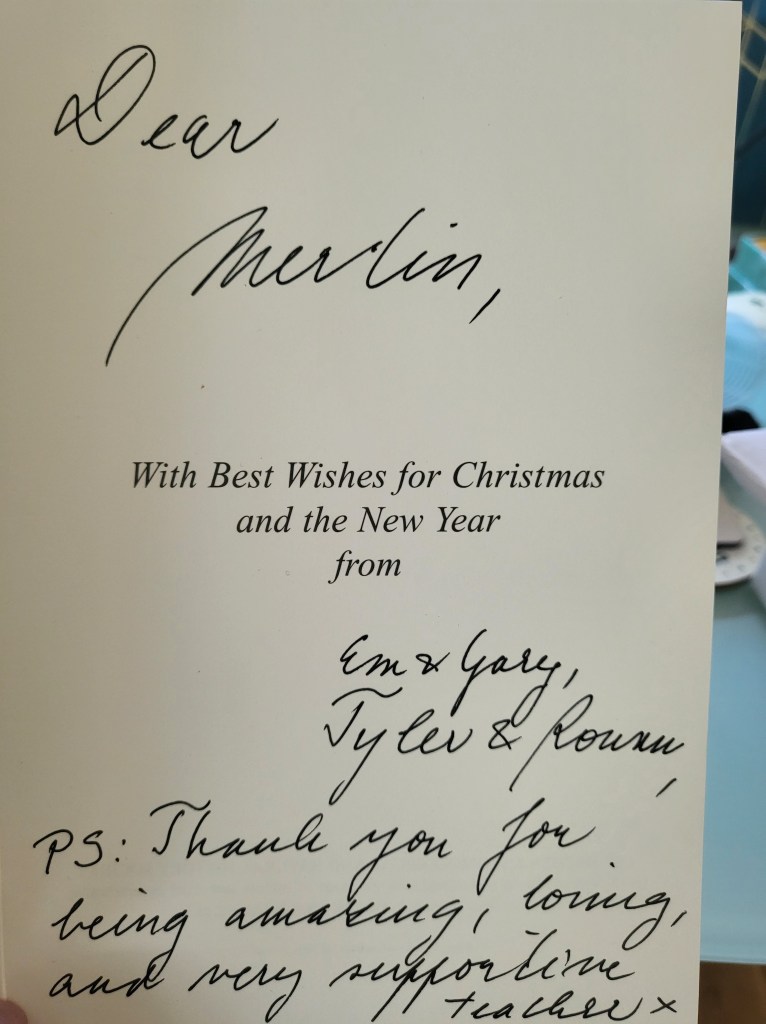 Dear
Merlin,
With Best Wishes for Christmas
and the New Year
from
Em & Gary,
Tyler & Rowan,
PS: Thank you for
being amazing, loving,
and very supportive
teacher x